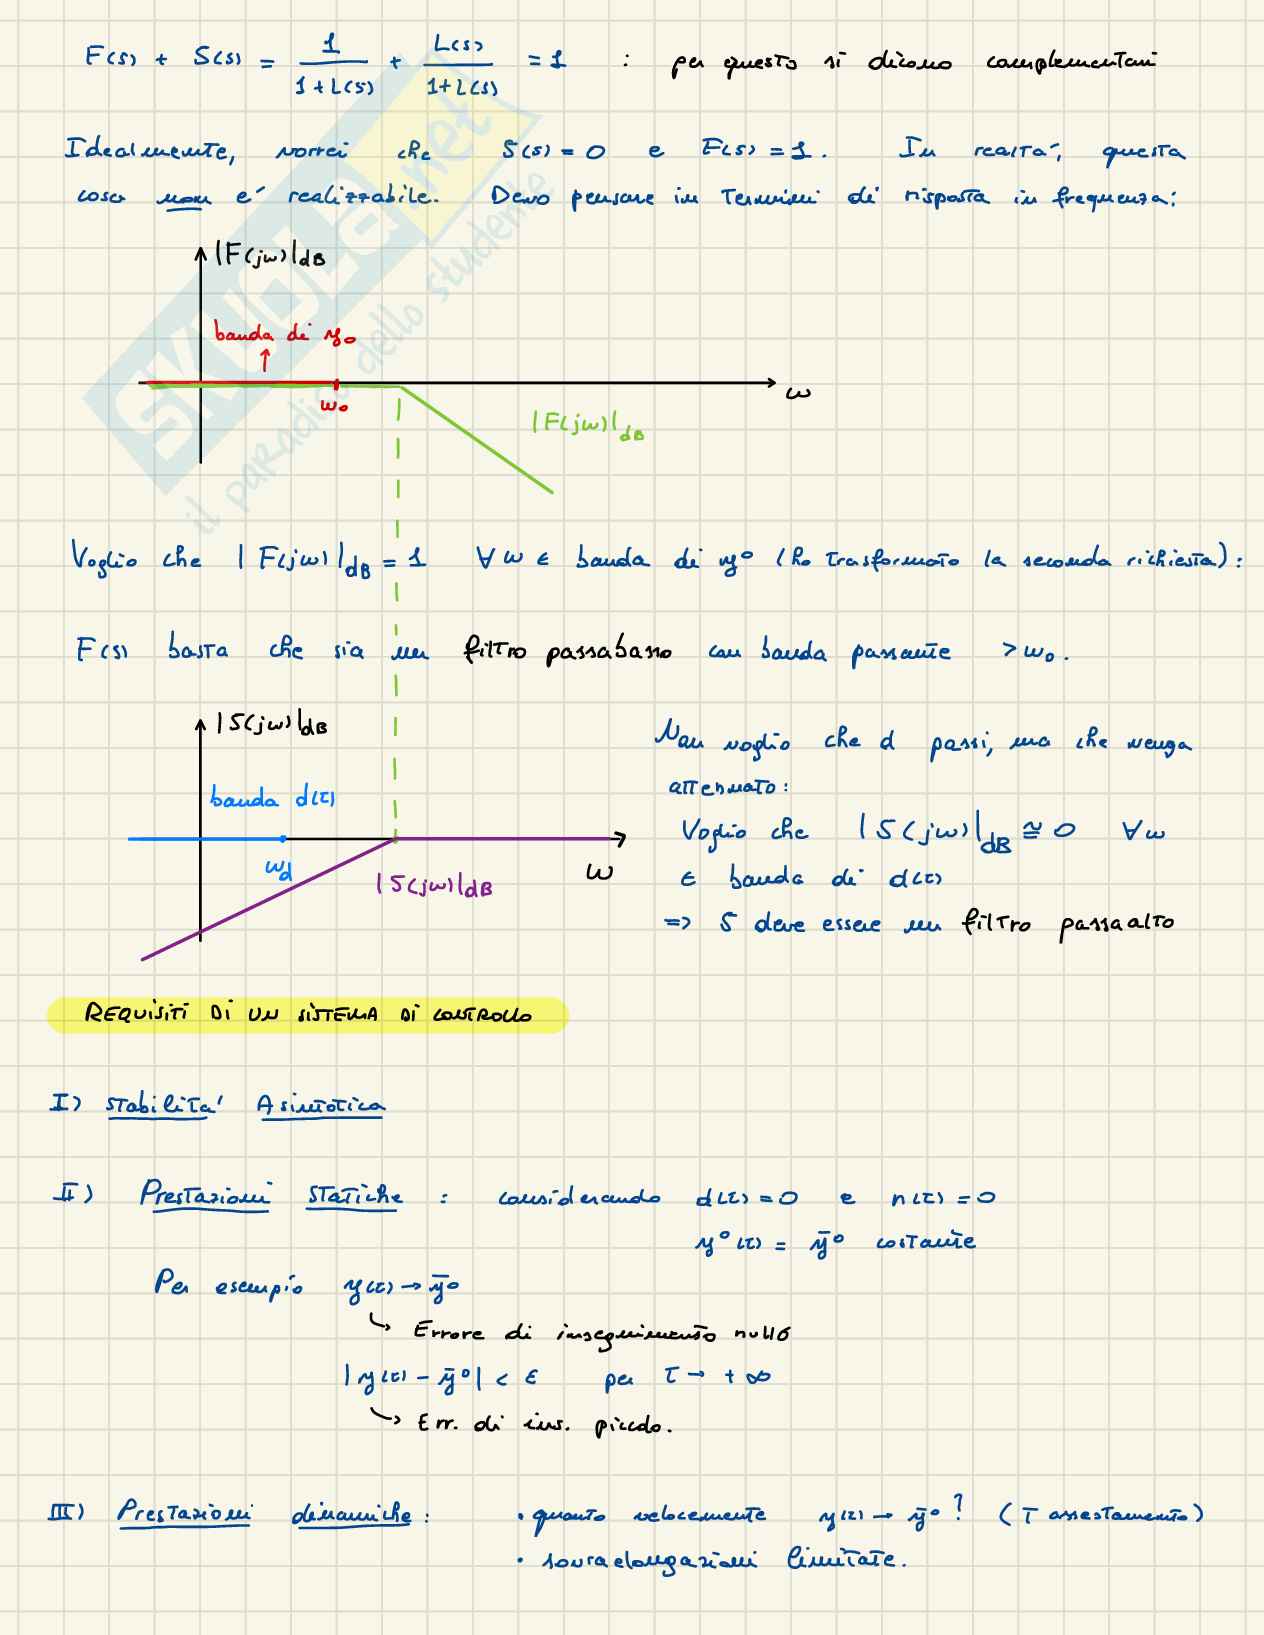 F(s) + S(s) = 1/(1+L(s)) + L(s)/(1+L(s)) = 1 : per questo si dicono complementari
Idealmente, vorrei che S(s)=0 e F(s)=1. In realtà, questa
cosa non è realizzabile. Devo pensare in termini di risposta in frequenza:
|F(jω)|dB
banda di y₀
ω₀
ω
|F(jω)|dB
Voglio che |F(jω)|dB = 1 ∀ω ∈ banda di y° (ho trasformato la seconda richiesta):
F(s) basta che sia un filtro passabasso con banda passante > ω₀.
|S(jω)|dB
banda d(t)
ωd
ω
|S(jω)|dB
Non voglio che d passi, ma che venga
attenuato:
Voglio che |S(jω)|dB ≅ 0 ∀ω
∈ banda di d(t)
=> S deve essere un filtro passaalto
REQUISITI DI UN SISTEMA DI CONTROLLO
I) Stabilità Asintotica
II) Prestazioni statiche : considerando d(t)=0 e n(t)=0
y°(t) = ȳ° costante
Per esempio y(t) → ȳ°
↳ Errore di inseguimento nullo
|y(t) - ȳ°| < ε per t → +∞
↳ Err. di ins. piccolo.
III) Prestazioni dinamiche : • quanto velocemente y(t) → ȳ° ? (T assestamento)
• sovraelongazioni limitate.
SKUOLA.net
il paradiso dello studente